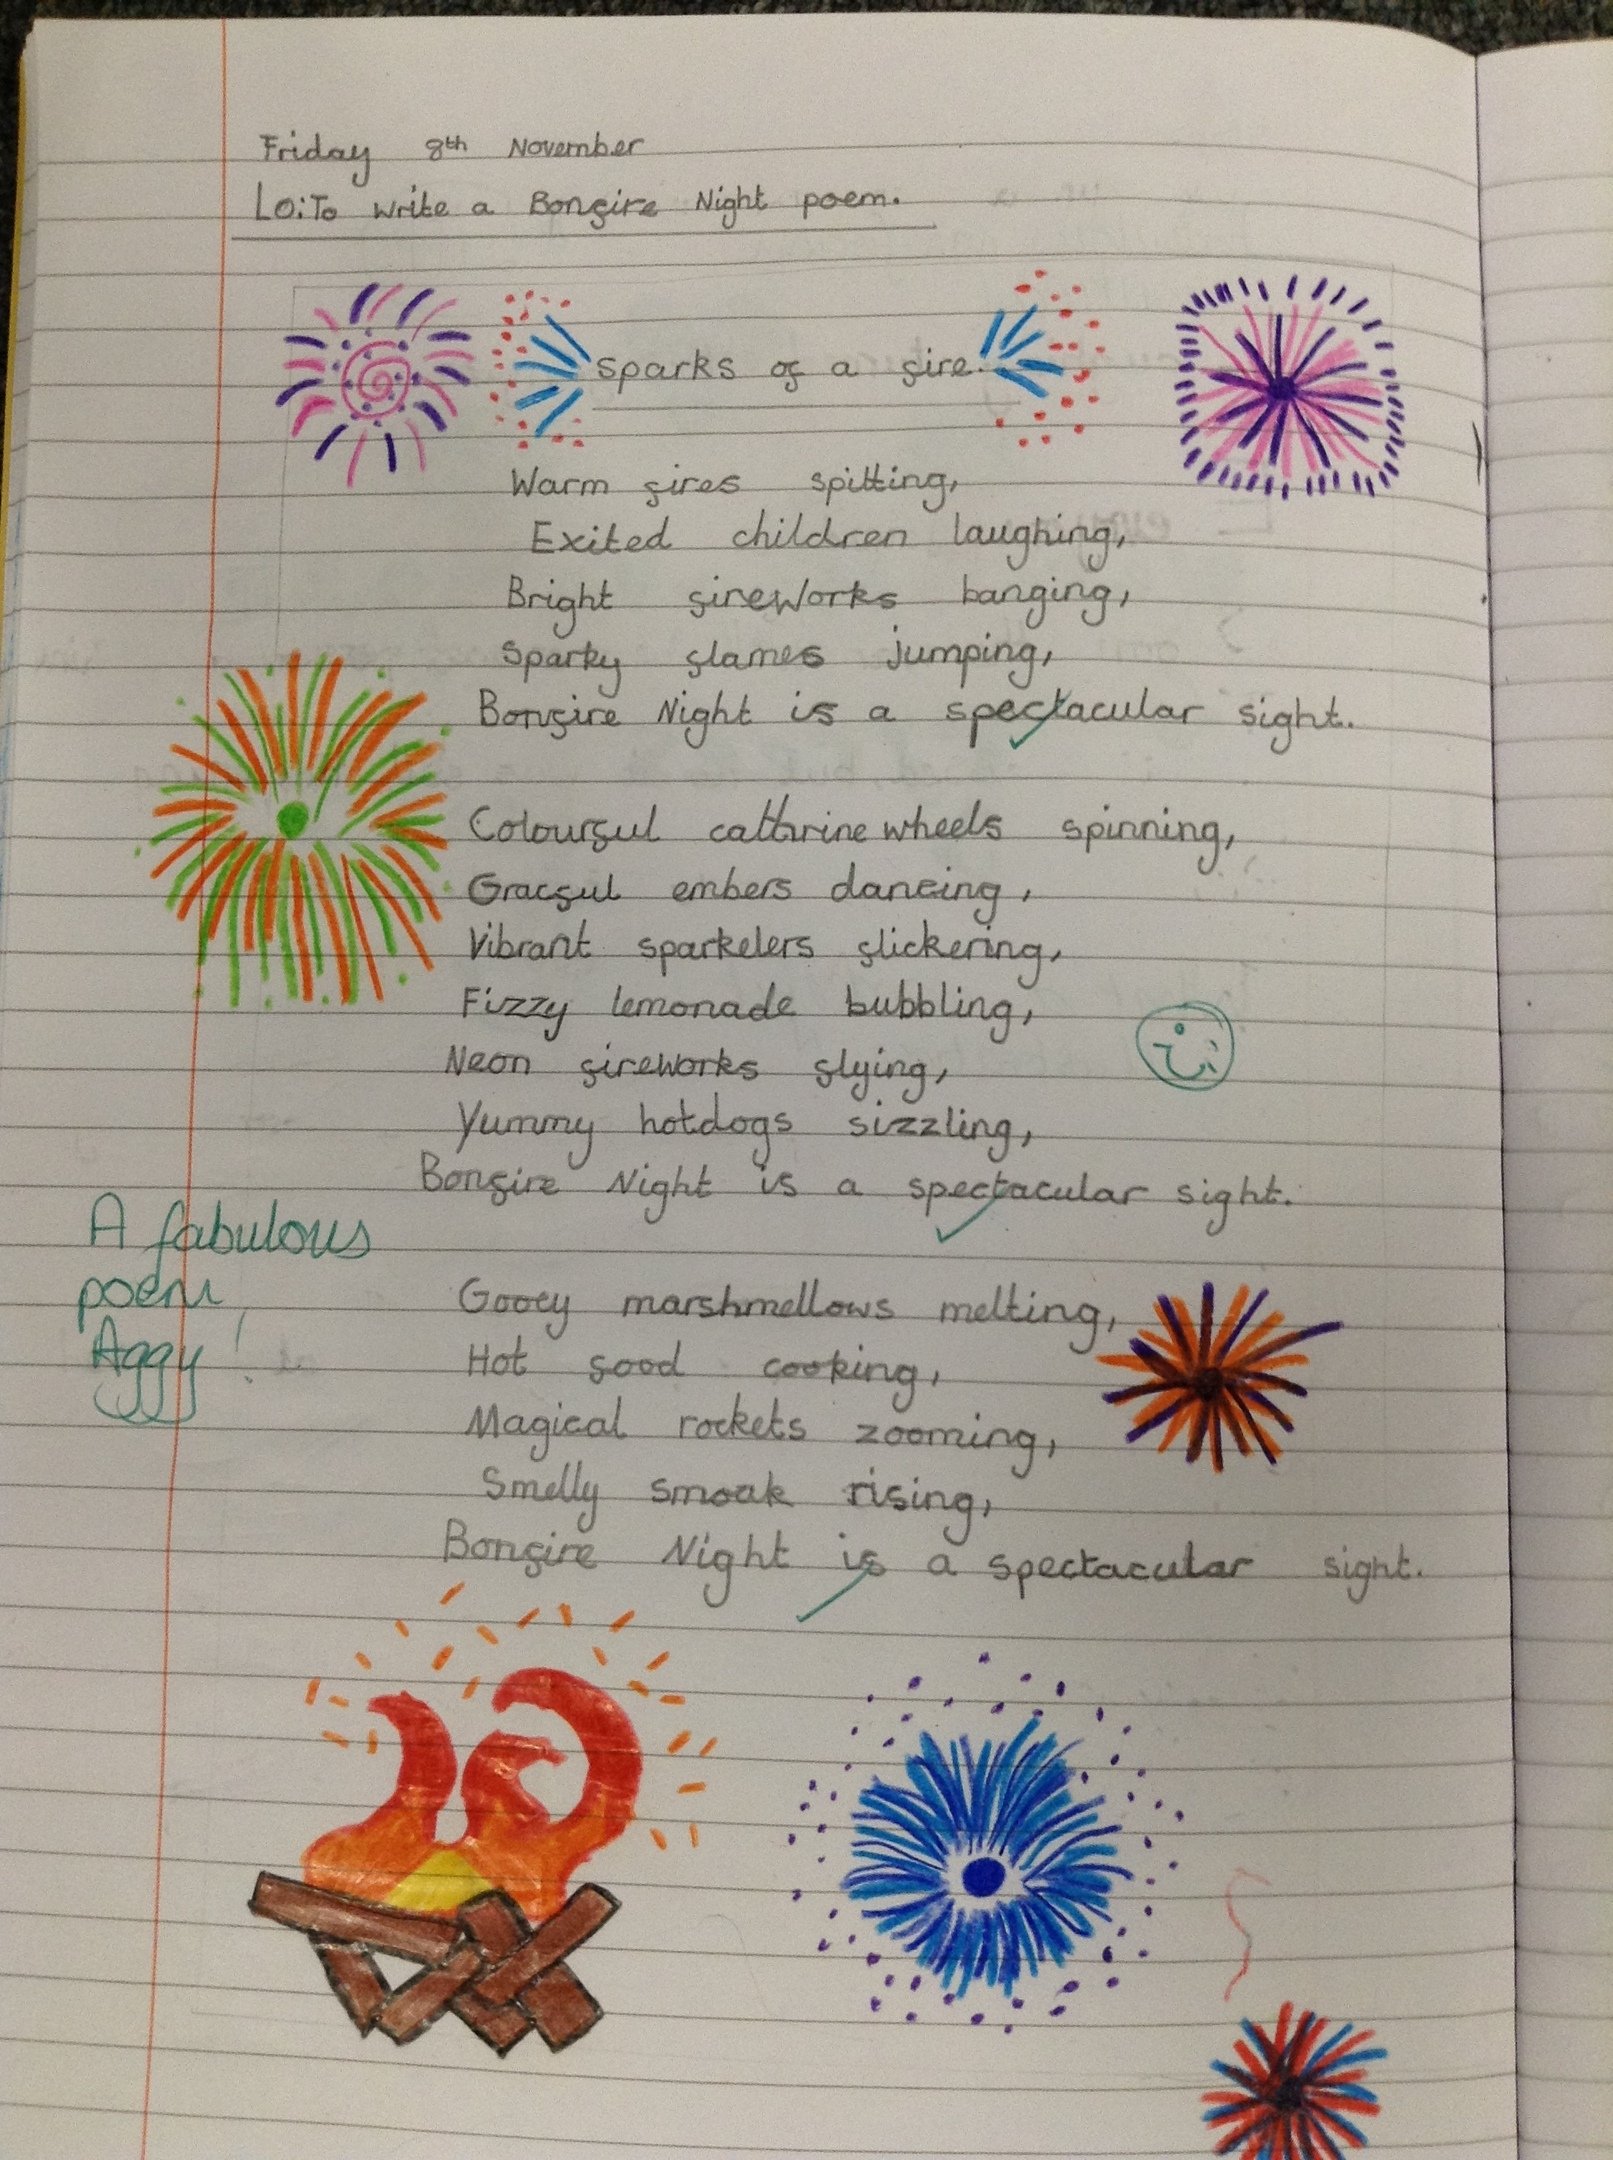 Friday 8th November
LO: To write a Bonfire Night poem.
sparks of a fire.
Warm fires spitting,
Exited children laughing,
Bright fireworks banging,
Sparky flames jumping,
Bonfire Night is a spectacular sight.
Colourful cathrine wheels spinning,
Gracful embers dancing,
Vibrant sparkelers flickering,
Fizzy lemonade bubbling,
Neon fireworks flying,
Yummy hotdogs sizzling,
Bonfire Night is a spectacular sight.
A fabulous
poem
Aggy!
Gooey marshmellows melting,
Hot food cooking,
Magical rockets zooming,
Smelly smoak rising,
Bonfire Night is a spectacular sight.